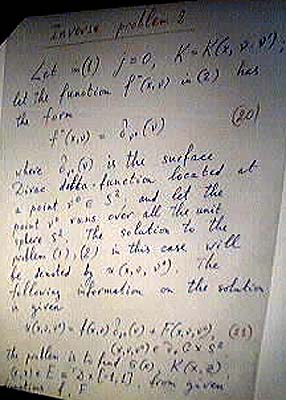 Inverse problem 2
Let in (1) j=0, K=K(x, ν, ν');
let the function f⁻(x,ν) in (2) has
the form
f⁻(x,ν) = δ_ν⁰(ν) (20)
where δ_ν⁰(ν) is the surface
Dirac delta-function located at
a point ν⁰ ∈ S², and let the
point ν⁰ runs over all the unit
sphere S². The solution to the
problem (1), (2) in this case will
be denoted by u(x, ν, ν⁰). The
following information on the solution
is given
u(x,ν,ν⁰) = f(x,ν) δ_ν⁰(ν) + F(x,ν,ν⁰), (21)
The problem is to find
from given
f, F